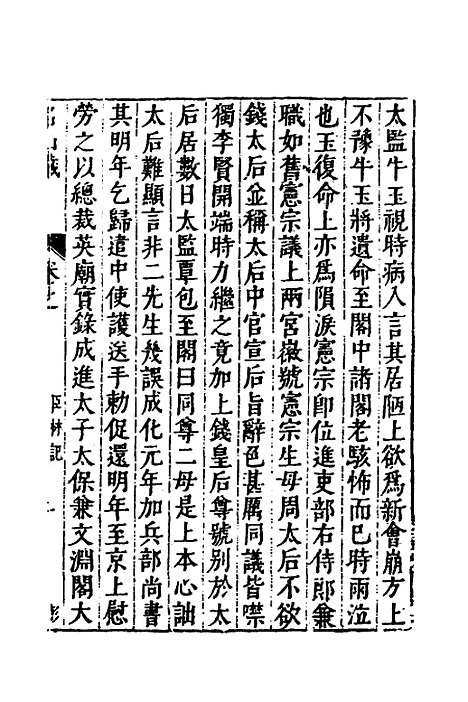 太監牛玉視時病入言其居陋上欲爲新會崩方上
不豫牛玉將遺命至閣中諸閣老駭怖而已時雨泣
也玉復命上亦爲隕淚憲宗卽位進吏部右侍郎兼
職如舊憲宗議上兩宮徽號憲宗生母周太后不欲
錢太后並稱太后中官宣后旨辭色甚厲同議皆噤
獨李賢開端時力繼之竟加上錢皇后尊號別於太
后居數日太監覃包至閣曰同尊二母是上本心詘
太后難顯言非二先生幾誤成化元年加兵部尚書
其明年乞歸遣中使護送手勅促還明年至京上慰
勞之以總裁英廟實錄成進太子太保兼文淵閣大
名山藏 卷之 臣林記